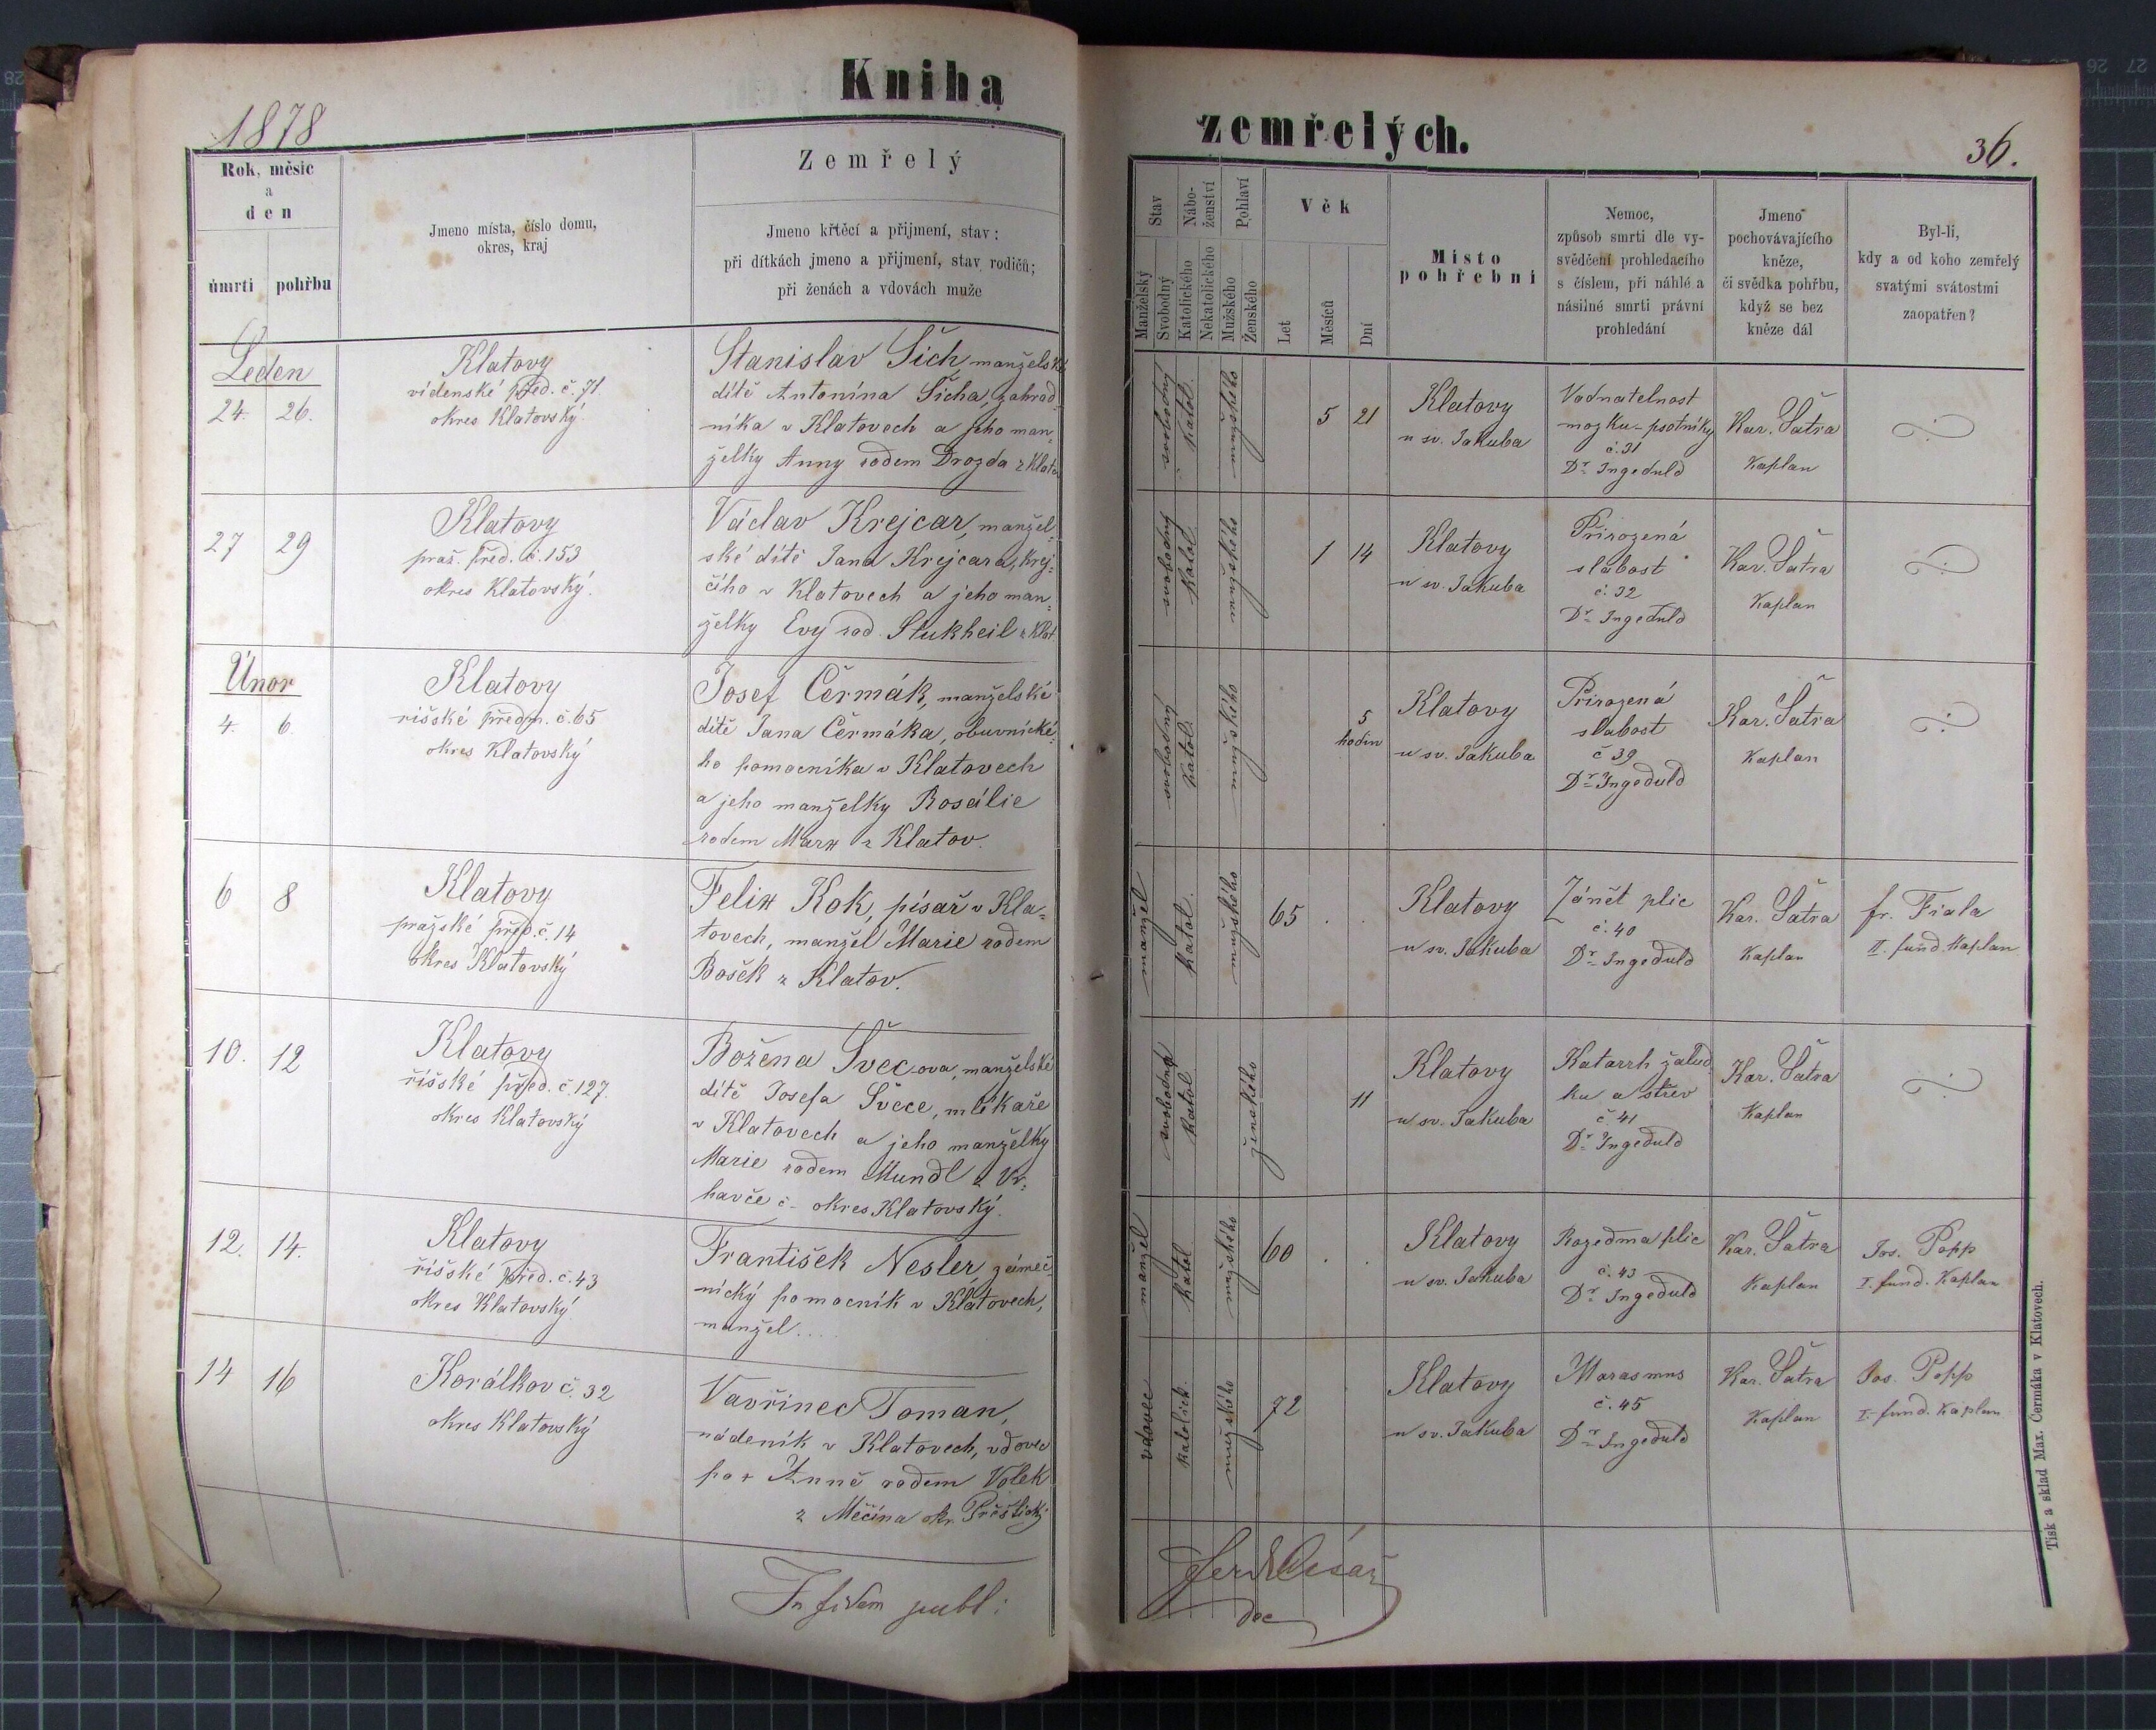 Kniha
1878
Rok, měsíc
a
den
úmrtí
pohřbu
Jmeno místa, číslo domu,
okres, kraj
Zemřelý
Jmeno křtěcí a přijmení, stav:
při dítkách jmeno a přijmení, stav rodičů;
při ženách a vdovách muže
Leden
24. 26.
Klatovy
vídenské před. č. 71
okres Klatovský
Stanislav Šich, manželské
dítě Antonína Šicha, zahrad-
níka v Klatovech a jeho man-
želky Anny rodem Drozda z Klatov
27 29
Klatovy
praž. před. č. 153
okres Klatovský.
Václav Krejcar, manžel-
ské dítě Jana Krejcara, krej-
čího v Klatovech a jeho man-
želky Evy rod. Stukheil z Klat.
Únor
4. 6.
Klatovy
říšské předm. č. 65
okres Klatovský
Josef Čermák, manželské
dítě Jana Čermáka, obuvnické-
ho pomocníka v Klatovech
a jeho manželky Rosálie
rodem Marx z Klatov.
6 8
Klatovy
pražské před. č. 14
okres Klatovský
Felix Kok, písař v Kla-
tovech, manžel Marie rodem
Bošek z Klatov.
10. 12
Klatovy
říšské před. č. 127.
okres Klatovský
Božena Švecova, manželské
dítě Josefa Švece, mlékaře
v Klatovech a jeho manželky
Marie rodem Mundl z Vr-
havče č - okres Klatovský.
12. 14.
Klatovy
říšské před. č. 43
okres Klatovský
František Nesler, zámeč-
nický pomocník v Klatovech,
manžel....
14 16
Korálkov č. 32
okres Klatovský
Vavřinec Toman,
nádeník v Klatovech, vdovec
po + Anně rodem Volek
z Měčína okr. Přeštický
In fidem publ:
zemřelých.
36.
Stav
Manželský
Svobodný
Nábo-
ženství
Katolického
Nekatolického
Pohlaví
Mužského
Ženského
Věk
Let
Měsíců
Dní
Místo
pohřební
Nemoc,
způsob smrti dle vy-
svědčení prohledacího
s číslem, při náhlé a
násilné smrti právní
prohledání
Jmeno
pochovávajícího
kněze,
či svědka pohřbu,
když se bez
kněze dál
Byl-li,
kdy a od koho zemřelý
svatými svátostmi
zaopatřen?
svobodný
katol.
mužského
5 21
Klatovy
u sv. Jakuba
Vodnatelnost
mozku - psotníky
č. 31
Dr. Ingeduld
Kar. Šatra
Kaplan
svobodný
katol.
mužského
1 14
Klatovy
u sv. Jakuba
Přirozená
slabost
č. 32
Dr. Ingeduld
Kar. Šatra
Kaplan
svobodný
katol.
mužského
5
hodin
Klatovy
u sv. Jakuba
Přirozená
slabost
č 39
Dr. Ingeduld
Kar. Šatra
Kaplan
manžel
katol.
mužského
65 . .
Klatovy
u sv. Jakuba
Zánět plic
č. 40
Dr. Ingeduld
Kar. Šatra
Kaplan
fr. Fiala
II. fund. Kaplan
svobodná
katol.
ženského
11
Klatovy
u sv. Jakuba
Katarrh žalud
ku a střev
č. 41
Dr. Ingeduld
Kar. Šatra
Kaplan
manžel
katol
mužského
60 . .
Klatovy
u sv. Jakuba
Rozedma plic
č. 43
Dr. Ingeduld
Kar. Šatra
Kaplan
Jos. Popp
I. fund. Kaplan
vdovec
katolick.
mužského
72
Klatovy
u sv. Jakuba
Marasmus
č. 45
Dr. Ingeduld
Kar. Šatra
Kaplan
Jos. Popp
I. fund. Kaplan
Tisk a sklad Max. Čermáka v Klatovech.